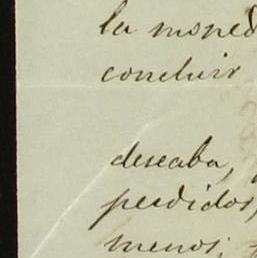 la moned
concluir
deseaba,
perdidos,
menos;